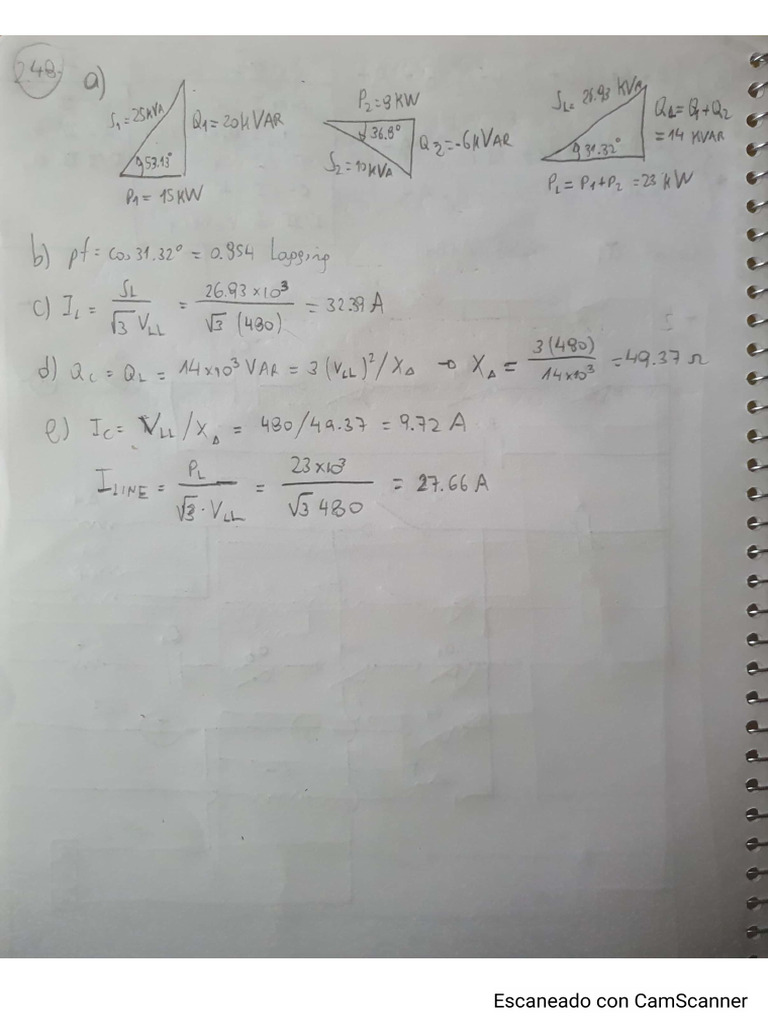 2.48.
a)
S₁=25kVA
Q₁=20kVAR
53.13°
P₁= 15KW
P₂=8KW
36.8°
S₂=10kVA
Q₂=-6kVAR
S_L= 26.93 KVA
31.32°
= 14 KVAR
P_L= P₁+P₂ =23 kW
b) pf= cos 31.32° = 0.854 Lagging
c) I_L = S_L/(√3 V_LL) = 26.93×10³/(√3 (480)) = 32.39 A
d) Q_C = Q_L = 14×10³ VAR = 3 (V_LL)²/X_Δ → X_Δ = 3(480)/14×10³ = 49.37 Ω
e) I_C= V_LL/X_Δ = 480/49.37 = 9.72 A
I_LINE = P_L/(√3·V_LL) = 23×10³/(√3 480) = 27.66 A
Escaneado con CamScanner